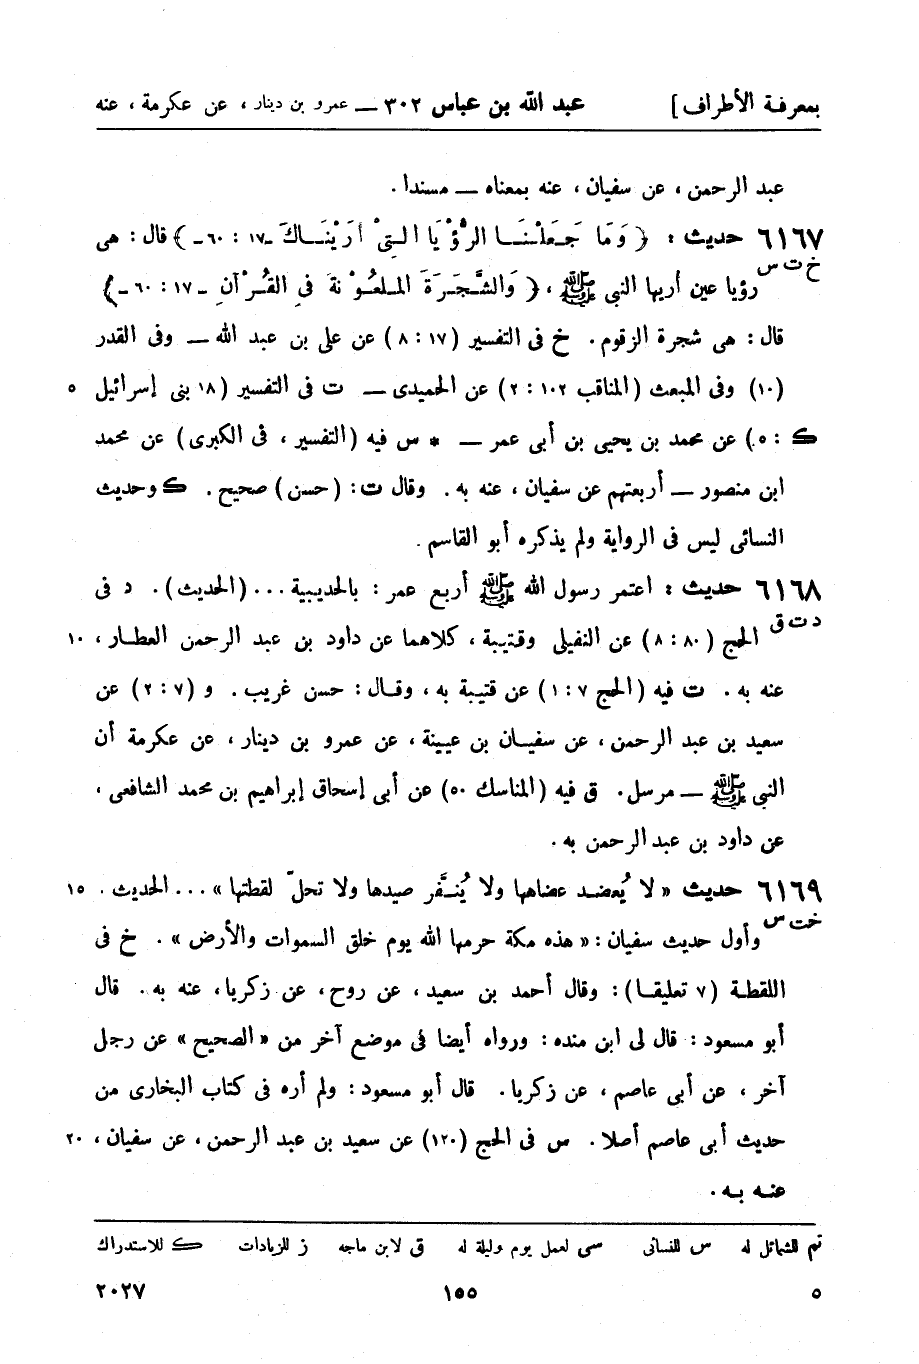 بمعرفة الأطراف] عبد الله بن عباس ٣٠٢ — عمرو بن دينار، عن عكرمة، عنه
عبد الرحمن، عن سفيان، عنه بمعناه — مسندا.
٦١٦٧ حديث: ﴿وَمَا جَعَلْنَا الرُّؤْيَا الَّتِىْ أَرَيْنَاكَ -١٧: ٦٠-﴾ قال: هى
خ ت س رؤيا عين أريها النبى ﷺ، ﴿وَالشَّجَرَةَ الْمَلْعُوْنَةَ فِى الْقُرْآنِ -١٧: ٦٠-﴾
قال: هى شجرة الزقوم. خ فى التفسير (١٧: ٨) عن على بن عبد الله — وفى القدر
(١٠) وفى المبعث (المناقب ١٠٢: ٢) عن الحميدى — ت فى التفسير (١٨ بنى إسرائيل ٥
ك: ٥) عن محمد بن يحيى بن أبى عمر — * س فيه (التفسير، فى الكبرى) عن محمد
ابن منصور — أربعتهم عن سفيان، عنه به. وقال ت: (حسن) صحيح. ك وحديث
النسائى ليس فى الرواية ولم يذكره أبو القاسم.
٦١٦٨ حديث: اعتمر رسول الله ﷺ أربع عمر: بالحديبية ... (الحديث). د فى
د ت ق الحج (٨٠: ٨) عن النفيلى وقتيبة، كلاهما عن داود بن عبد الرحمن العطار، ١٠
عنه به. ت فيه (الحج ٧: ١) عن قتيبة به، وقال: حسن غريب. و (٧: ٢) عن
سعيد بن عبد الرحمن، عن سفيان بن عيينة، عن عمرو بن دينار، عن عكرمة أن
النبى ﷺ — مرسل. ق فيه (المناسك ٥٠) عن أبى إسحاق إبراهيم بن محمد الشافعى،
عن داود بن عبد الرحمن به.
٦١٦٩ حديث «لا يُعضد عضاهها ولا يُنفَّر صيدها ولا تحلّ لقطتها» ... الحديث. ١٥
خت س وأول حديث سفيان: «هذه مكة حرمها الله يوم خلق السموات والأرض». خ فى
اللقطة (٧ تعليقا): وقال أحمد بن سعيد، عن روح، عن زكريا، عنه به. قال
أبو مسعود: قال لى ابن منده: ورواه أيضا فى موضع آخر من «الصحيح» عن رجل
آخر، عن أبى عاصم، عن زكريا. قال أبو مسعود: ولم أره فى كتاب البخارى من
حديث أبى عاصم أصلا. س فى الحج (١٢٠) عن سعيد بن عبد الرحمن، عن سفيان، ٢٠
عنه به.
تم للشمائل له س للنسائى سى لعمل يوم وليلة له ق لابن ماجه ز للزيادات ك للاستدراك
٥ ١٥٥ ٢٠٢٧